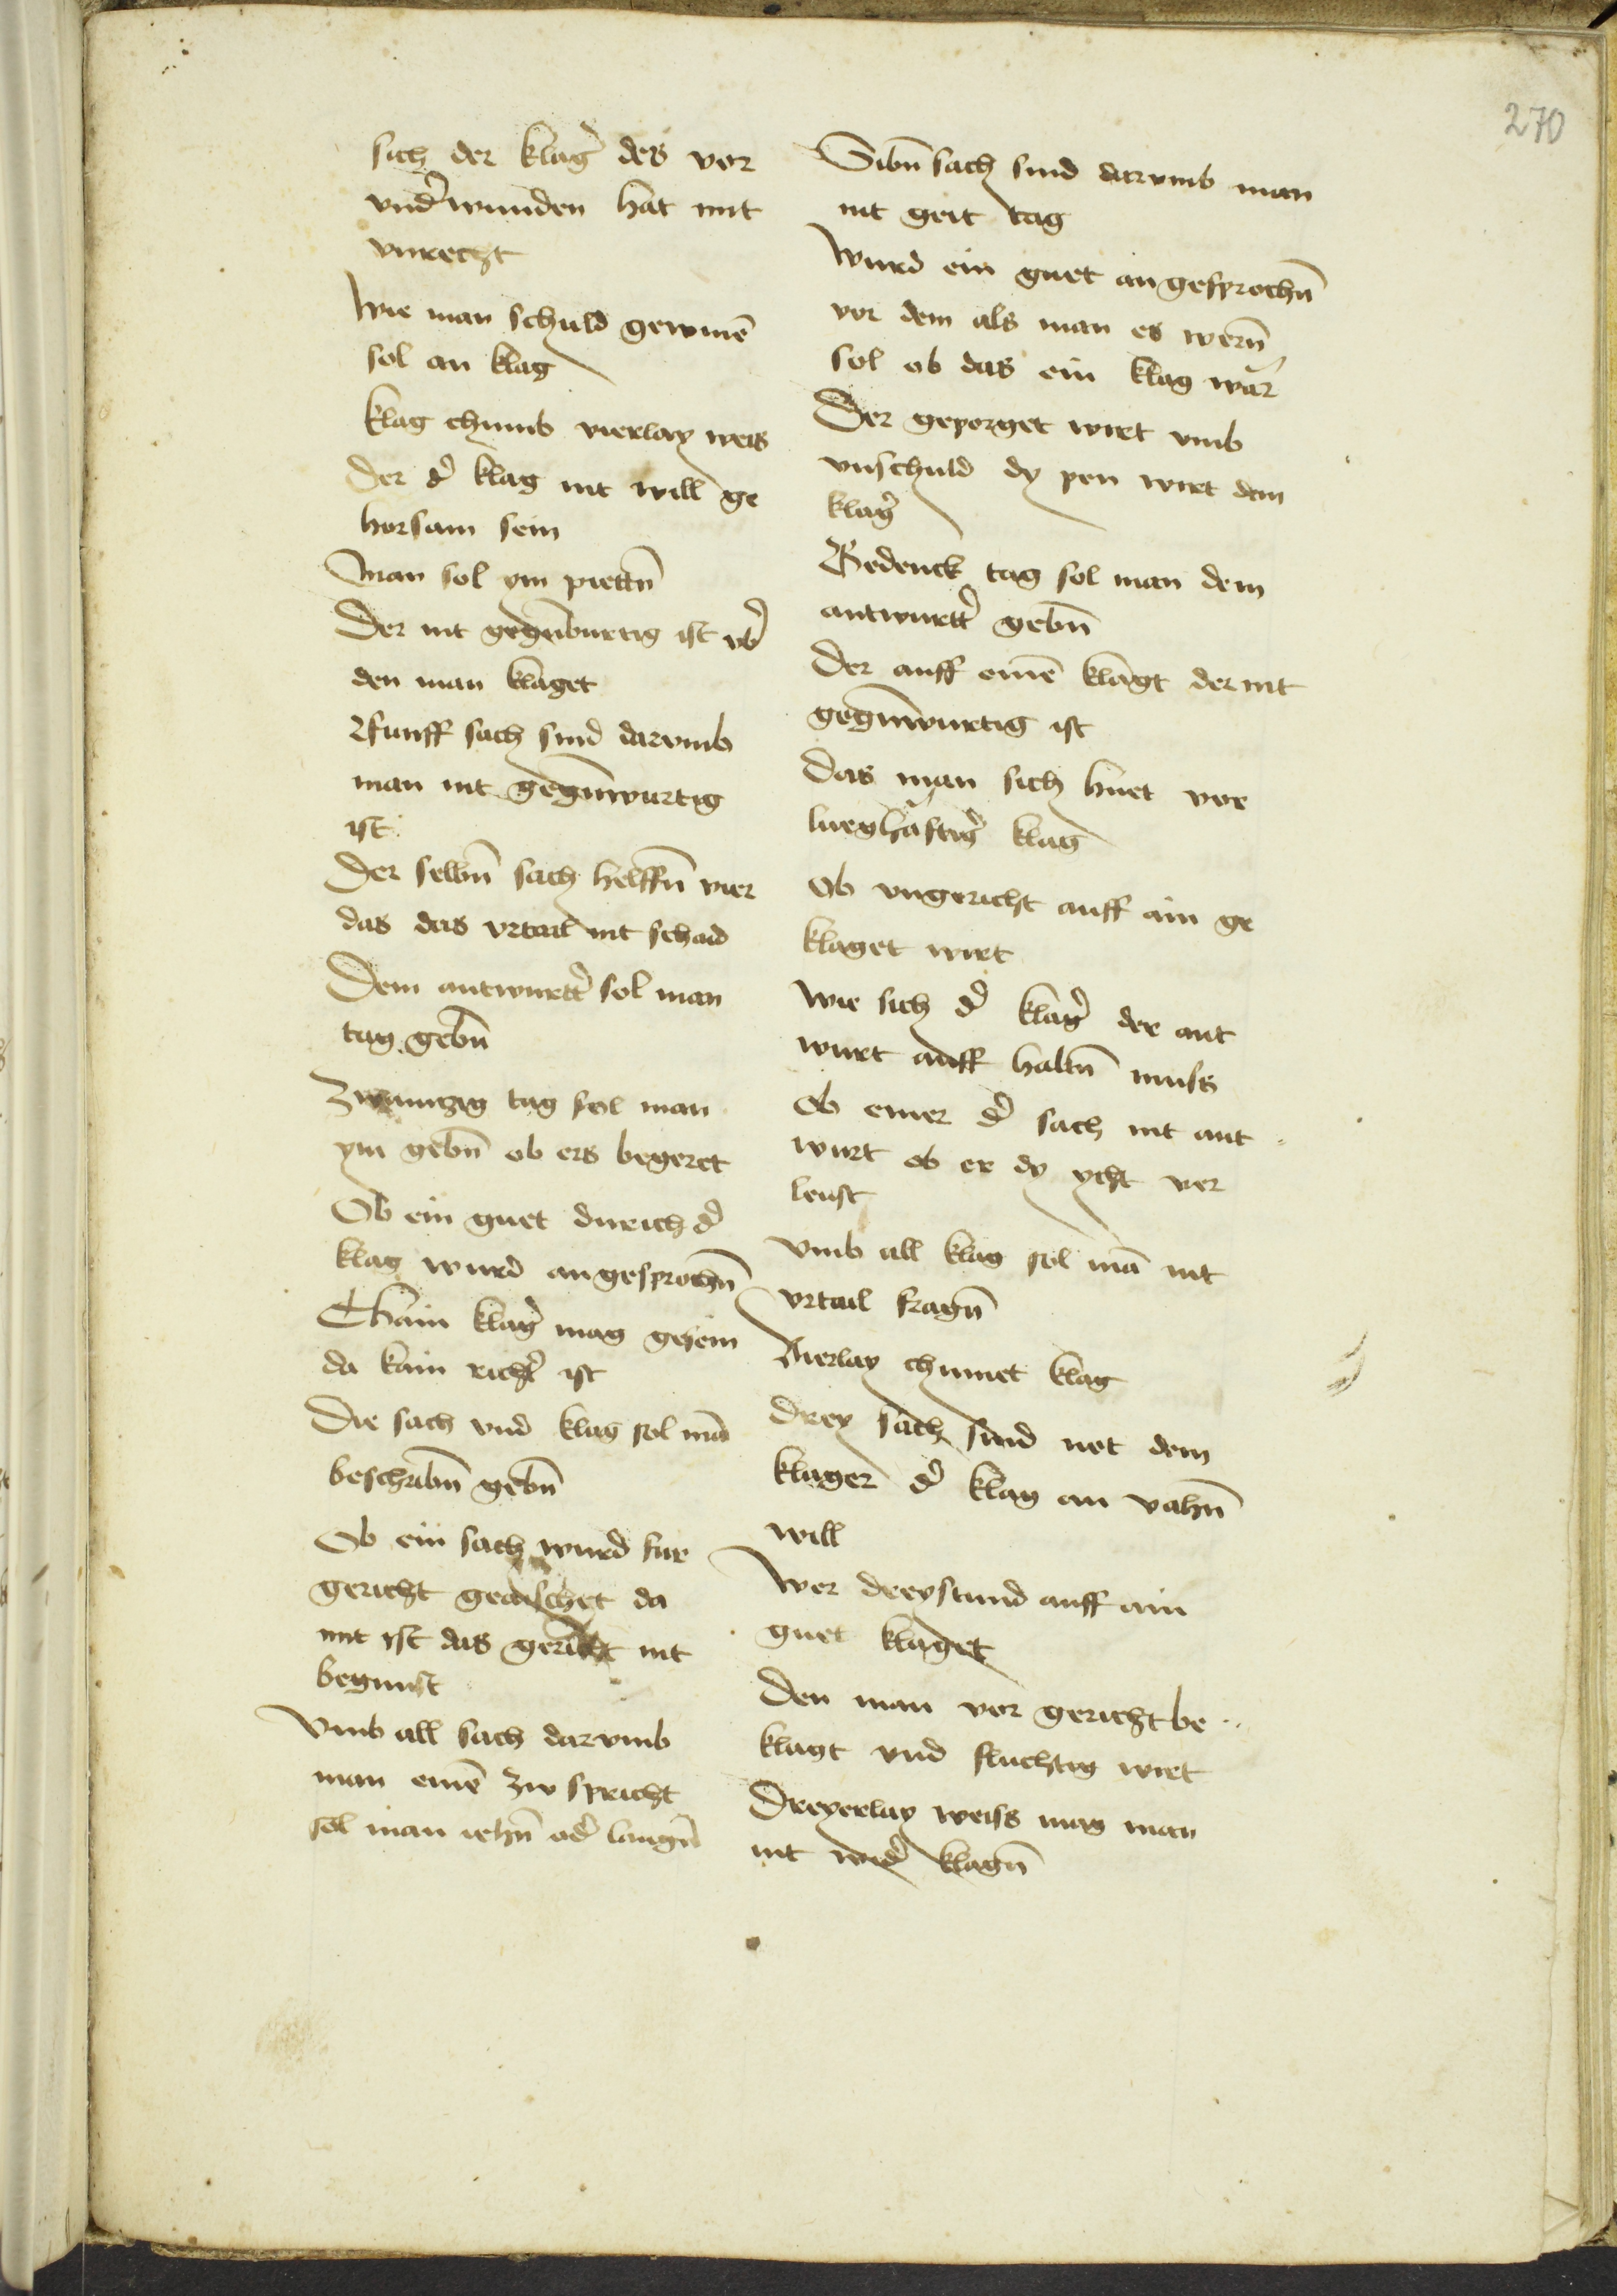 270
sich der klag̉ des vor
vnd̉wunden hat mit
vnrecht
Wie man schuld gewinē
sol an klag
klag chumb vierlay weis
Der d̉ klag nit will ge
horsam sein
Man sol ym piettn̄
Der nit gegēburtig ist vb̉
den man klaget
Ffunff sach sind darvmb
man nit gegn̄wurtig
ist
Der selbn̄ sach helffn̄ vier
das das vrtail nit schad
Dem antwurtt̉ sol man
tag gebn̄
Zwainzig tag sol man
ym gebn̄ ob ers begeret
Ob ein guet durich d̉
klag wurd angesprochn̄
Chain klag̉ mag gesein
da kain richt̉ ist
Die sach vnd klag sol mā
beschribn̄ gebn̄
Ob ein sach wurd fur
gericht geaischet da
mit ist das gericht nit
begunst
Vmb all sach darvmb
man einē zw spricht
sol man iehn̄ od̉ laugn̄
Sibn̄ sach sind darvmb man
nit geit tag
Wurd ein guet angesprochn̄
vor dem als man es wern̄
sol ob das ein klag wär
Der geporget wirt vmb
vnschuld dy pen wirt dem
klag̉
Bedenck tag sol man dem
antwurtt̉ gebn̄
Der auff einē klagt der nit
gegn̄wurtig ist
Das man sich huet vor
lueghaftig̉ klag
Ob vngericht auff ain ge
klaget wirt
Wie sich d̉ klag̉ der ant
wurt auff haltn̄ muss
Ob einer d̉ sach nit ant
wurt ob er dy ycht ver
leust
Vmb all klag sol mā nit
vrtail fragn̄
Vierlay chumet klag
Drey sach sind not dem
klager d̉ klag an vahn̄
will
Wer dreystund auff ain
guet klaget
Den man vor gericht be
klagt vnd fluchtig wirt
Dreyerlay weiss mag man
nit wid̉ klagn̄